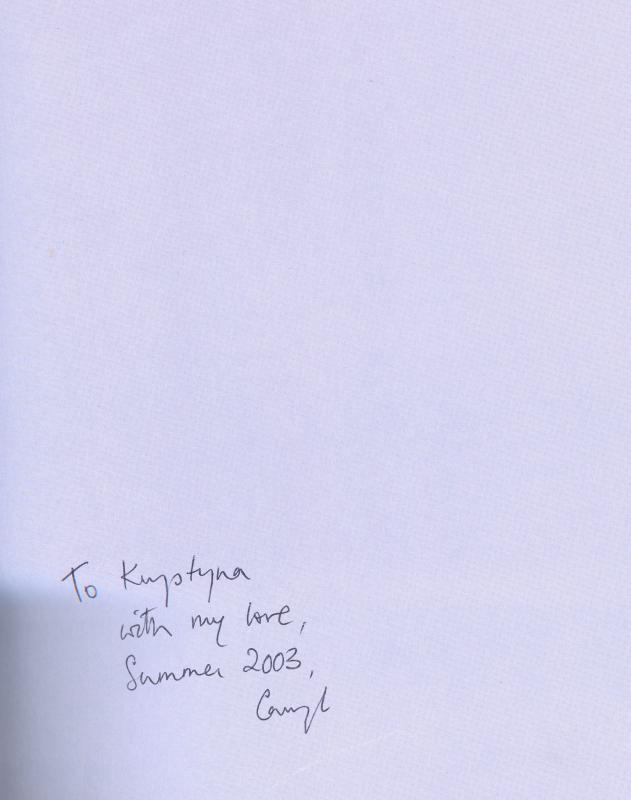 To Krystyna
with my love,
Summer 2003,
Caryl